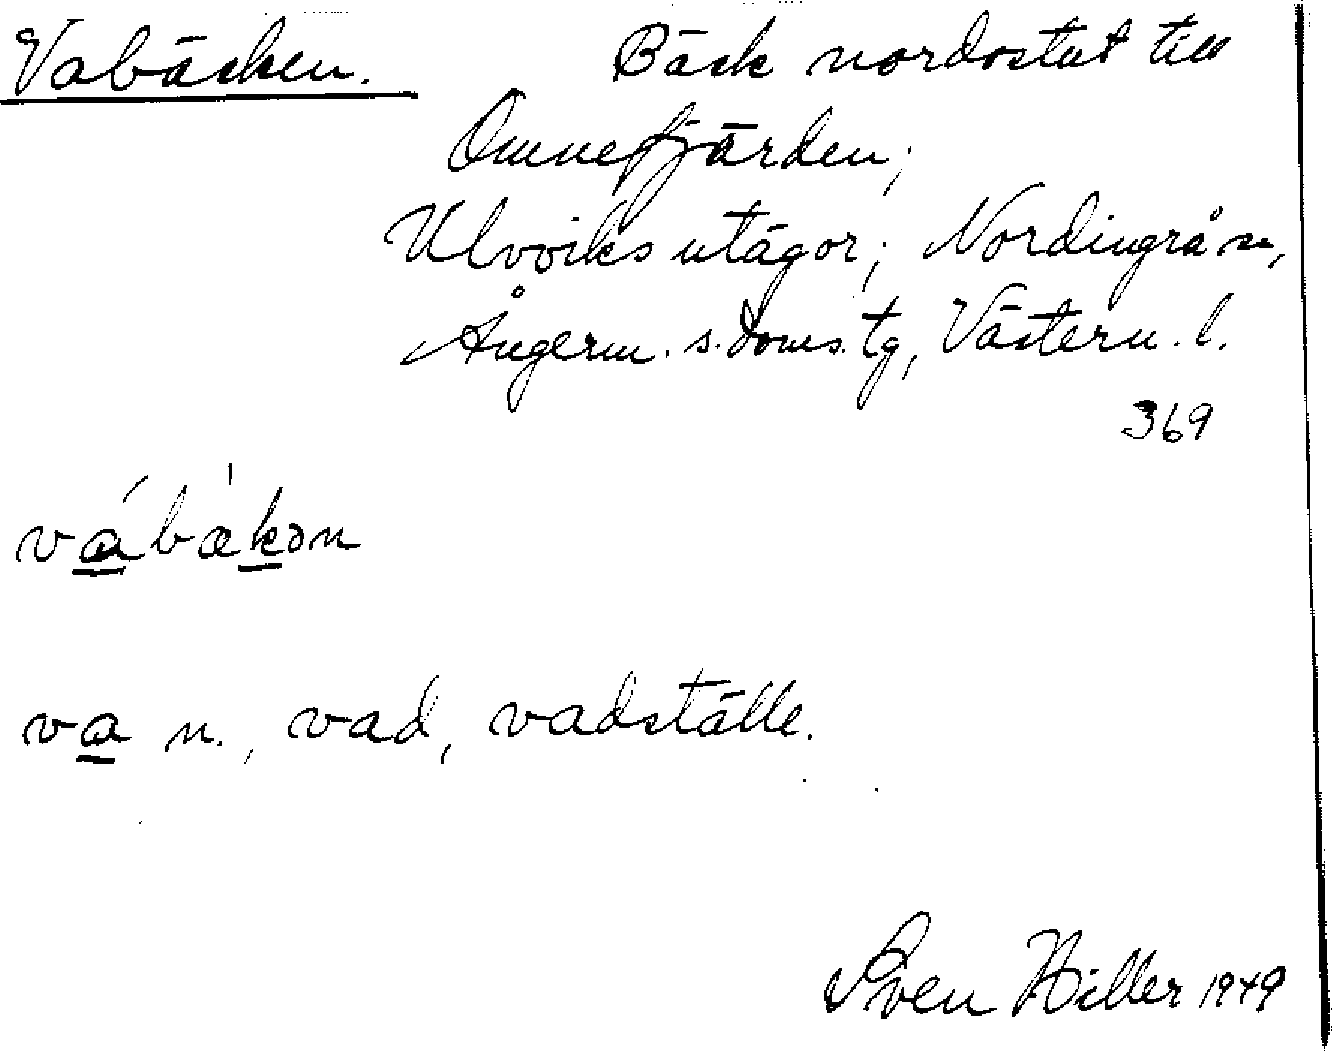 Vabäcken. Bäck nordostut till
Omnefjärden;
Ulvviks utägor; Nordingrå sn,
Ångerm. s. doms. tg, Västern. l.
369
va n., vad, vadställe.
Sven Hiller 1949